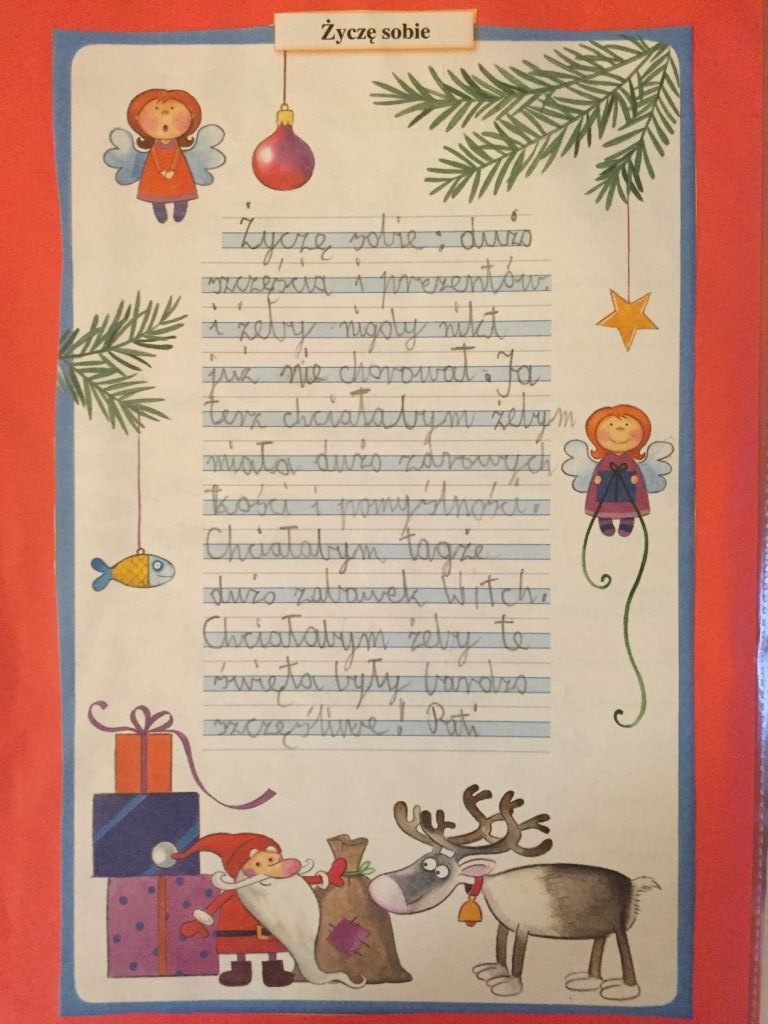 Życzę sobie
Życzę sobie: dużo
szczęścia i prezentów.
i żeby nigdy nikt
już nie chorował. Ja
terz chciałabym żebym
miała dużo zdrowych
kości i pomyślności.
Chciałabym tagże
dużo zabawek Witch.
Chciałabym żeby te
święta były bardzo
szczęśliwe! Pati